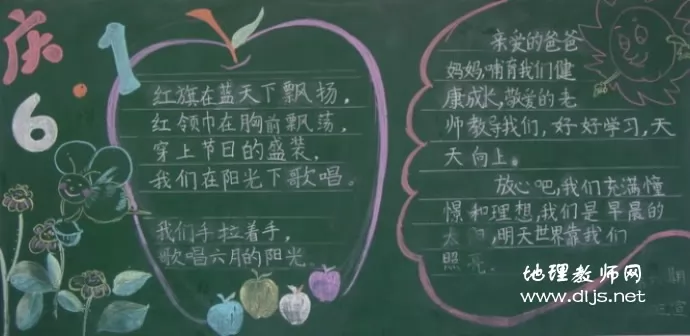 庆
6·1
红旗在蓝天下飘扬,
红领巾在胸前飘荡,
穿上节日的盛装,
我们在阳光下歌唱。
我们手拉着手,
歌唱六月的阳光。
亲爱的爸爸
妈妈,哺育我们健
康成长,敬爱的老
师教导我们,好好学习,天
天向上。
放心吧,我们充满憧
憬和理想,我们是早晨的
太,明天世界靠我们
照亮。
地理教师网
www.dljs.net